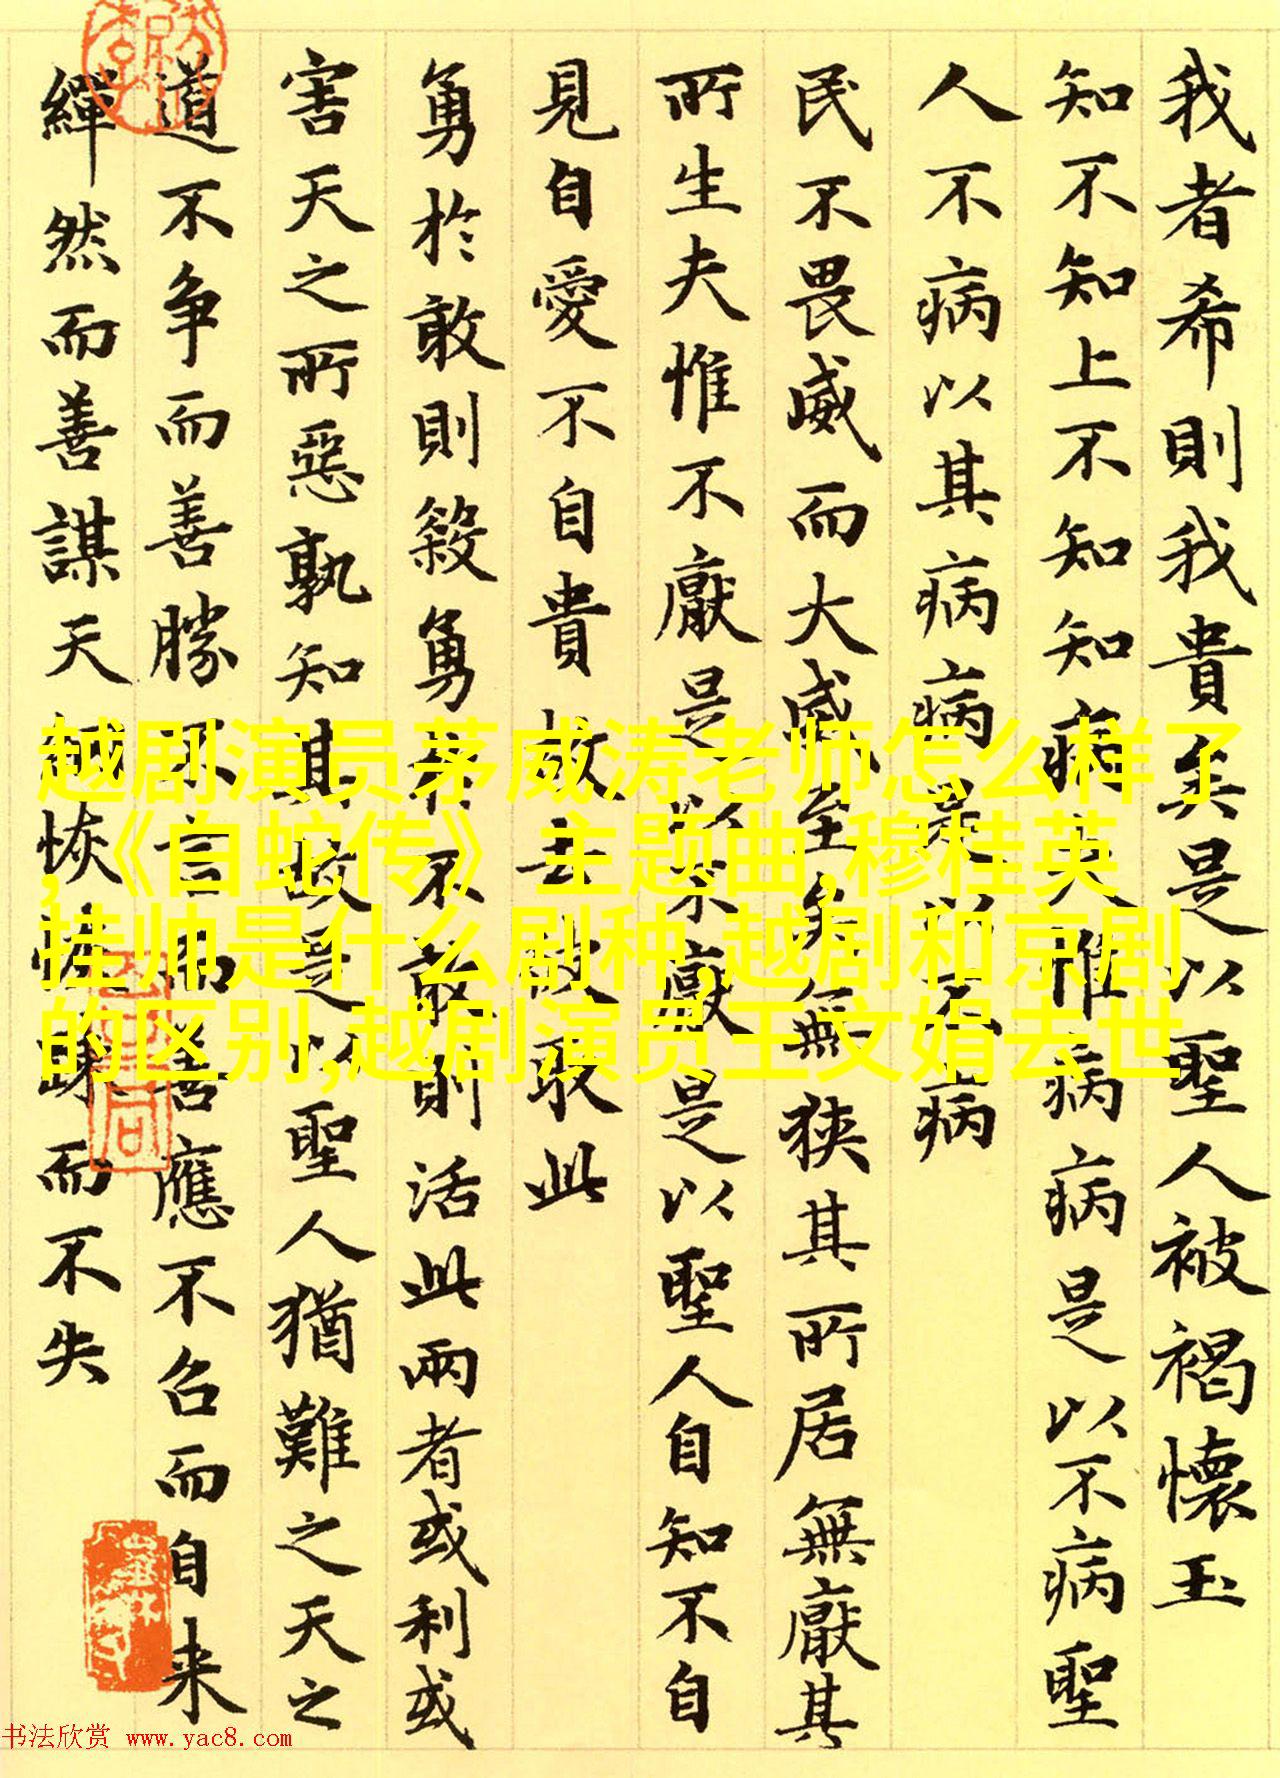 我者希則我貴矣是以聖人被褐懷玉
知不知上不知知病夫惟病病是以不病聖
人不病以其病病是以不病
民不畏威而大威至矣無狹其所居無厭其
所生夫惟不厭是以不厭是以聖人自知不自
見自愛不自貴故去彼取此
勇於敢則殺勇於不敢則活此兩者或利或
害天之所惡孰知其故是以聖人猶難之天之
道不争而善勝不言而善應不召而自来
繟然而善謀天網恢恢踈而不失
越剧演员茅威涛老师怎么样了
,《白蛇传》主题曲,穆桂英
挂帅是什么剧种,越剧和京剧
的区别,越剧演员王文娟去世
书法欣赏 www.yac8.com